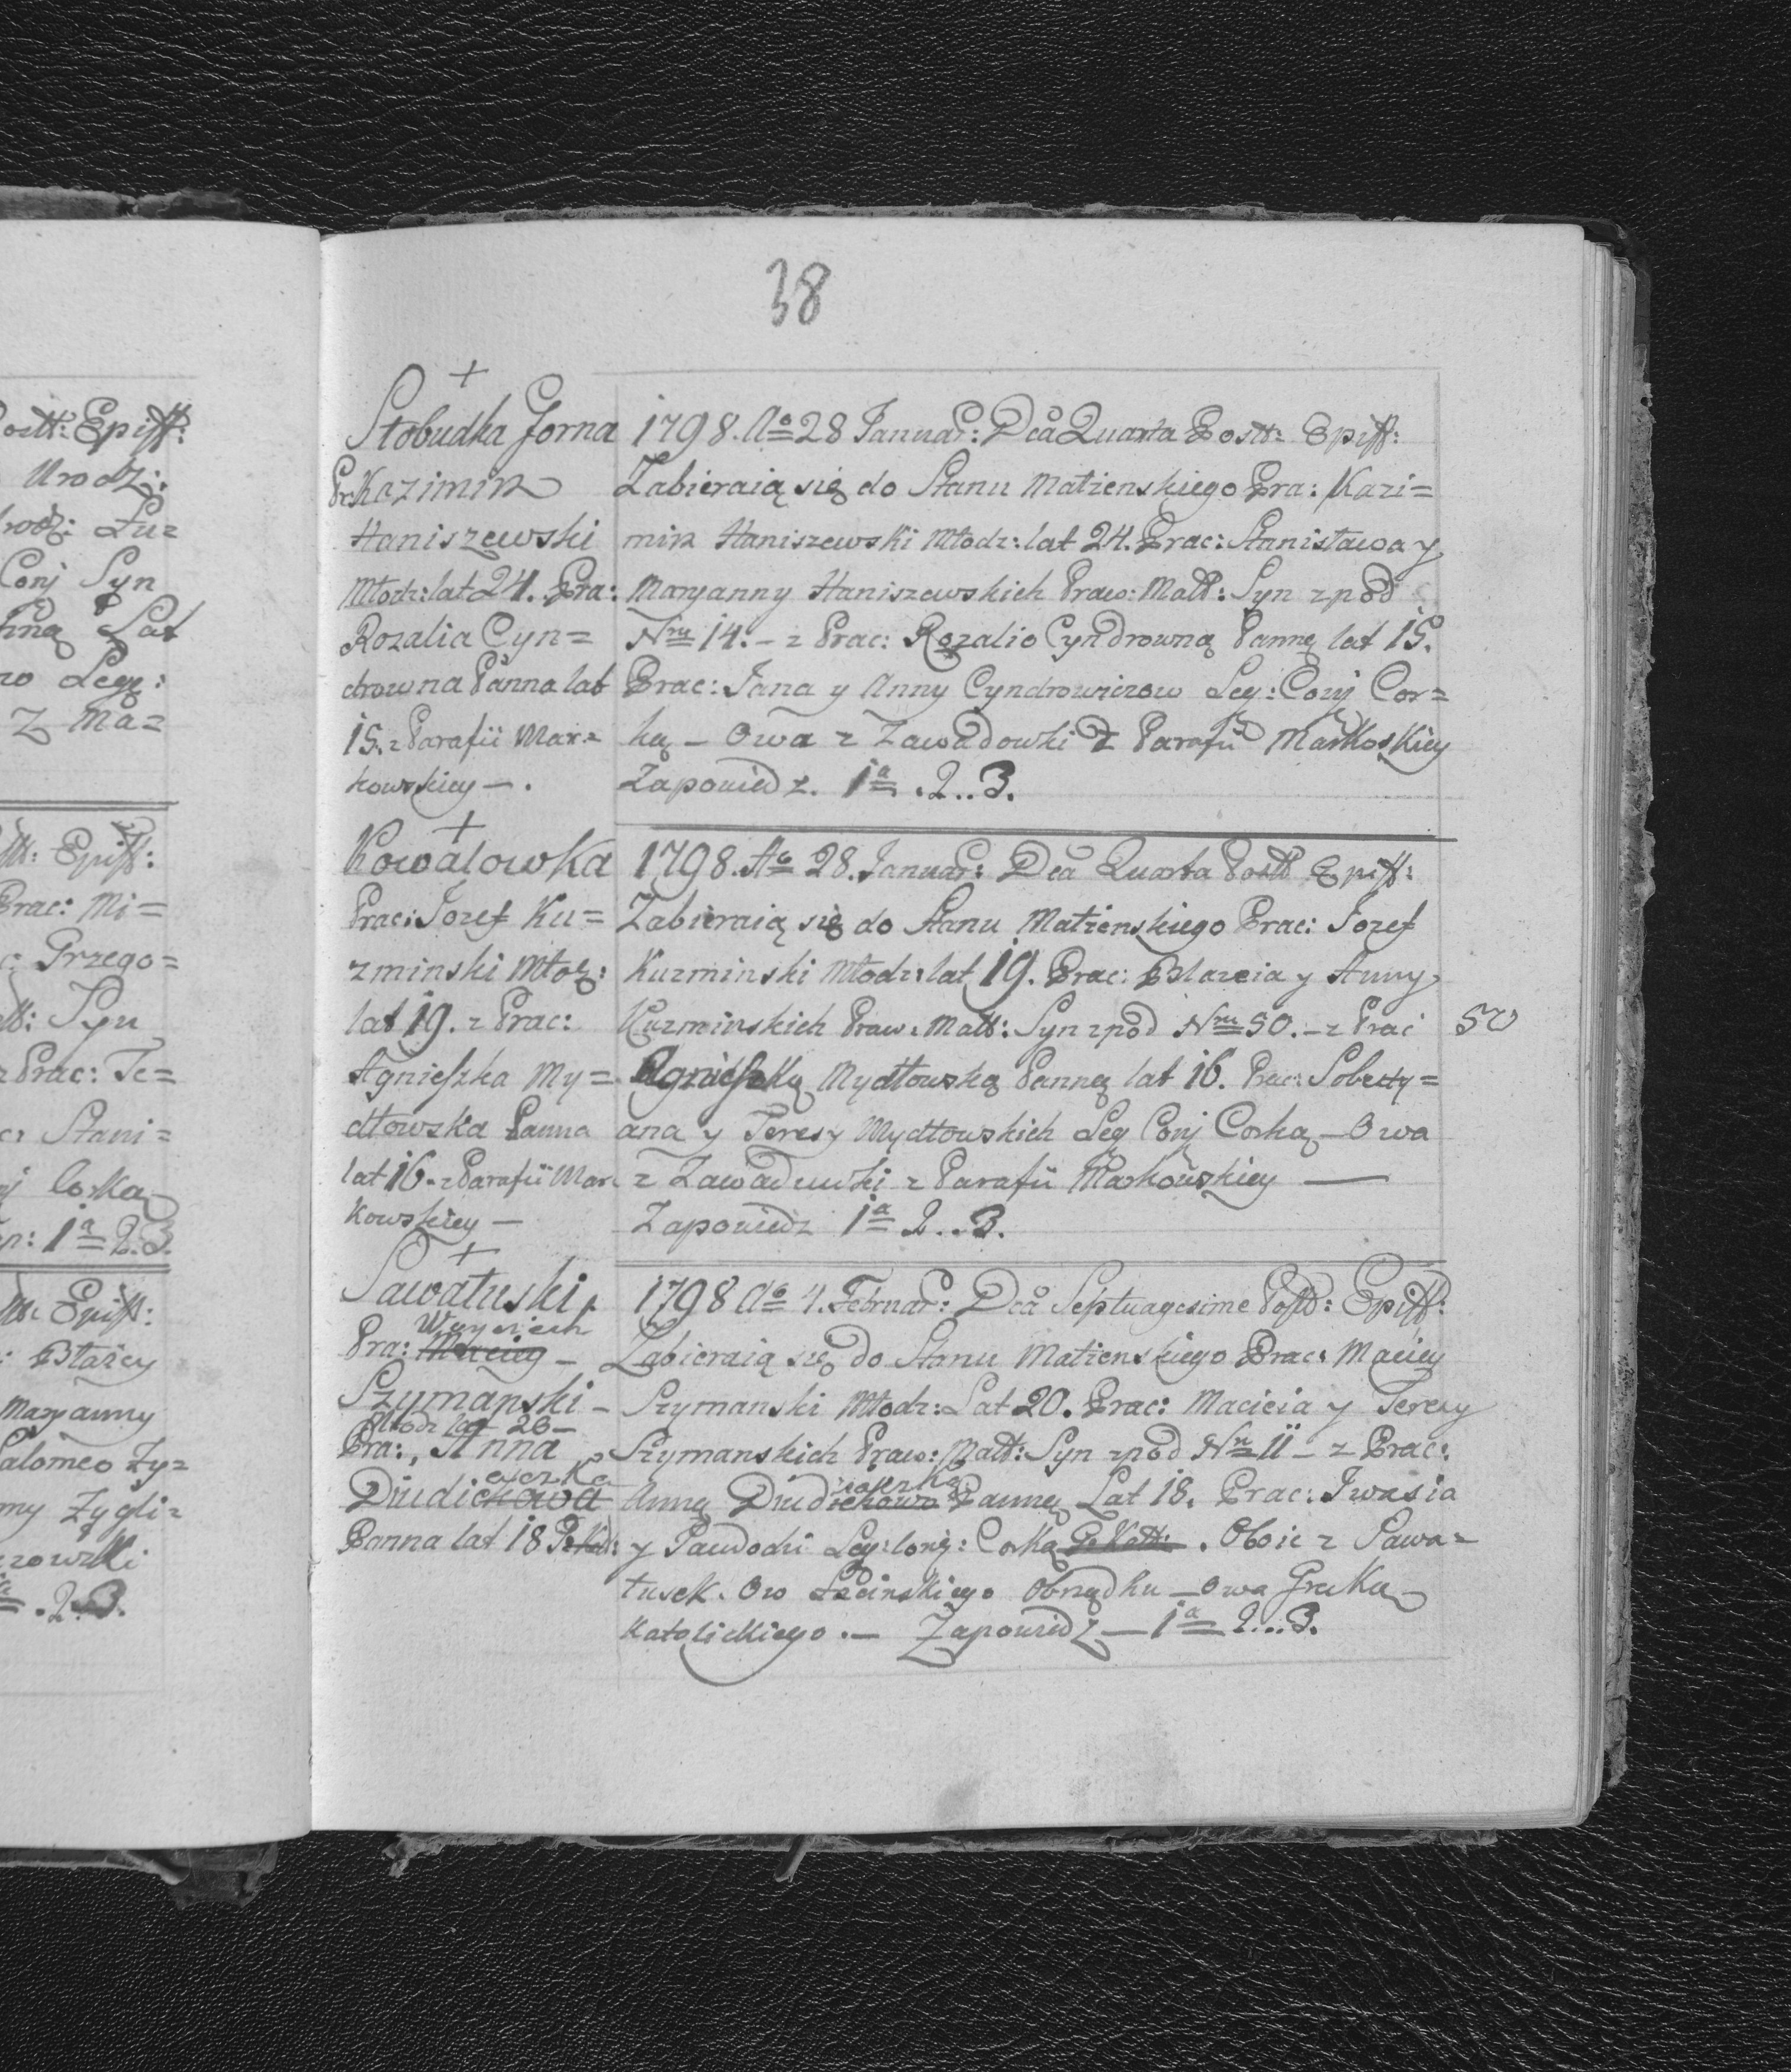 ostt: Epiff:
Urodz:
Conj Syn
Lat
ro Leg:
z Ma=
Epiff:
Prac: Mi=
Przego=
Syn
z Prac: Te=
Stani=
Corka
1a 2. 3.
Epiff:
Błażey
Maryanny
Salomeo Zy=
my Zygli=
. 2. 3.
38
+
Słobudka Jorna
Pr: Kazimirz
Haniszewski
Młodz: lat 24. Pra:
Rozalia Cyn=
drowna Panna lat
15. z Parafii Mar=
kowskiey — .
1798. Ao 28 Januar: Dca Quarta Postt: Epiff:
Zabieraią się do Stanu Małzenskiego Pra: Kazi=
mirz Haniszewski Młodz: lat 24. Prac: Stanisława y
Maryanny Haniszewskich Praw: Małł: Syn zpod
Nru 14. – z Prac: Rozalio Cyndrowną Panną lat 15.
Prac: Jana y Anny Cyndrowiczow Leg: Conj Cor=
ką – Owa z Zawadowki z Parafii Markoskiey
Zapowiedz. 1a . 2 .. 3.
+
Kowalowka
Prac: Jozef Ku=
zminski Młodz:
lat 19. z Prac:
Agnieszka My=
dłowska Panna
lat 16. z Parafii Mar
kowskiey —
1798. Ao 28. Januar: Dca Quarta Postt Epiff:
Zabieraią się do Stanu Małzenskiego Prac: Jozef
Kuzminski Młodz: lat 19. Prac: Błazeia y Anny
Kuzminskich Praw: Małł: Syn zpod Nru 50. – z Prac
50
Agnieszką Mydłowską Panną lat 16. Prac: Sobesty=
ana y Teresy Mydłowskich Leg Conj Corką – Owa
z Zawaduwki z Parafii Markowskiey —
Zapowiedz 1a 2 .. 3.
+
Sawałuski
Woyciech
Pra: Maciey –
Szymanski –
Młodz lat 20 –
Pra: Anna
Dziudichowa
Panna lat 18
1798 Ao 4. Februar: Dca Septuagesime Postt: Epiff:
Zabieraią się do Stanu Małzenskiego Prac: Maciey
Szymanski Młodz: Lat 20. Prac: Macieia y Teresy
Szymanskich Praw: Małł: Syn zpod Nru 11 – z Prac:
Anną Dziudichowa Panną Lat 18. Prac: Iwasia
y Pawdochi Leg: Conj: Corką . Oboie z Sawa=
łusek. Ow Łacinskiego Obrządku – Owa Greko
Katolickiego. — Zapowiedz — 1a 2 ... 3.